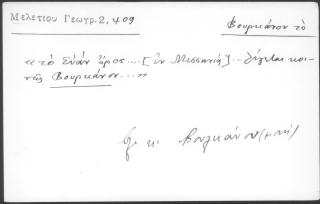 Μελετίου Γεωγρ. 2, 409
Βουρκάνον τὸ
«τὸ Εὐάν ὄρος....[ἐν Μεσσηνίᾳ]...λέγεται κοι-
νῶς Βουρκάνον...»
κ. Βουλκάνου (μονή)